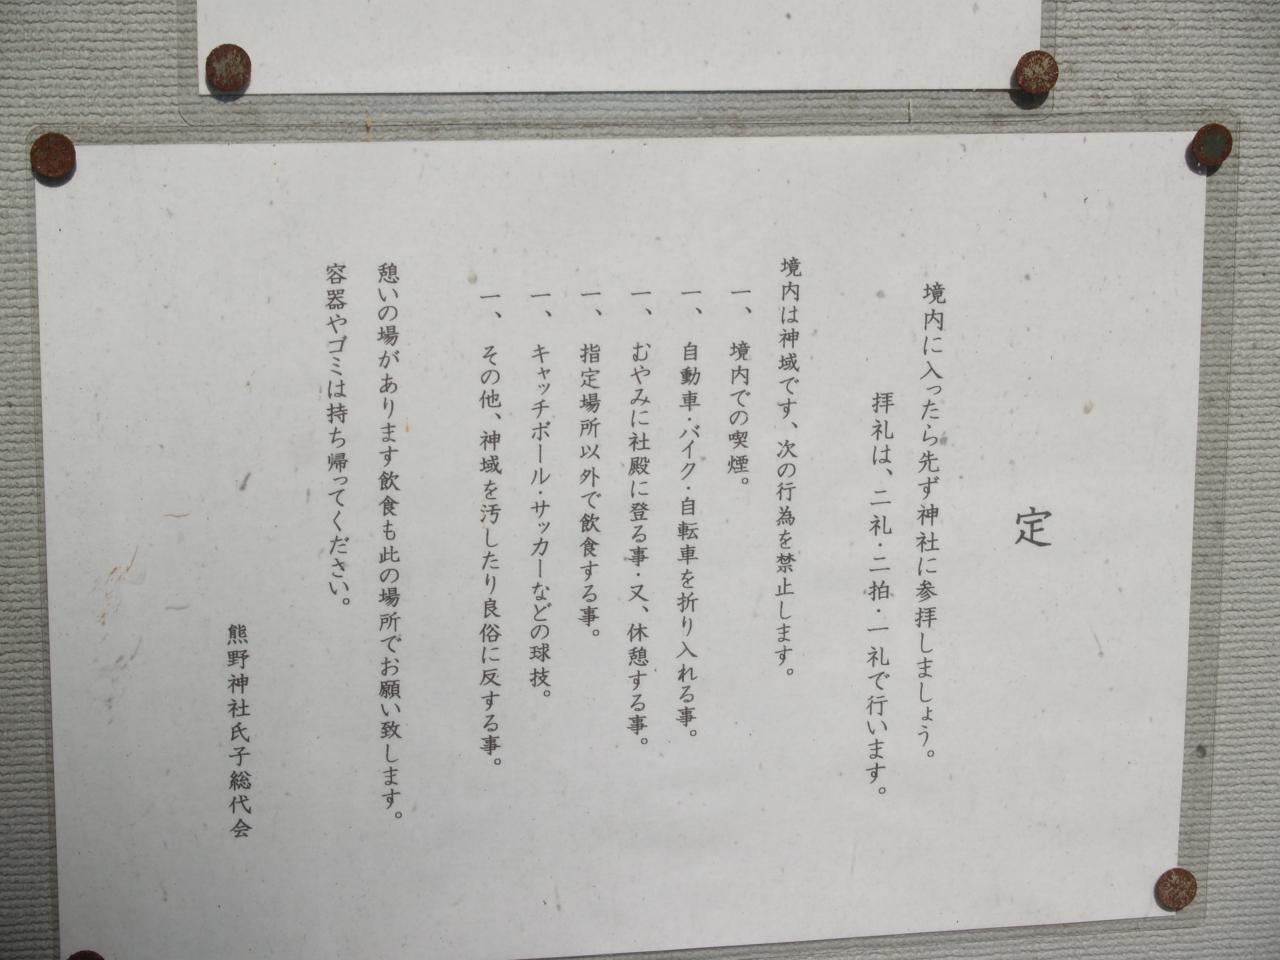 定
境内に入ったら先ず神社に参拝しましょう。
拝礼は、二礼・二拍・一礼で行います。
境内は神域です、次の行為を禁止します。
一、境内での喫煙。
一、自動車・バイク・自転車を折り入れる事。
一、むやみに社殿に登る事・又、休憩する事。
一、指定場所以外で飲食する事。
一、キャッチボール・サッカーなどの球技。
一、その他、神域を汚したり良俗に反する事。
憩いの場があります飲食も此の場所でお願い致します。
容器やゴミは持ち帰ってください。
熊野神社氏子総代会